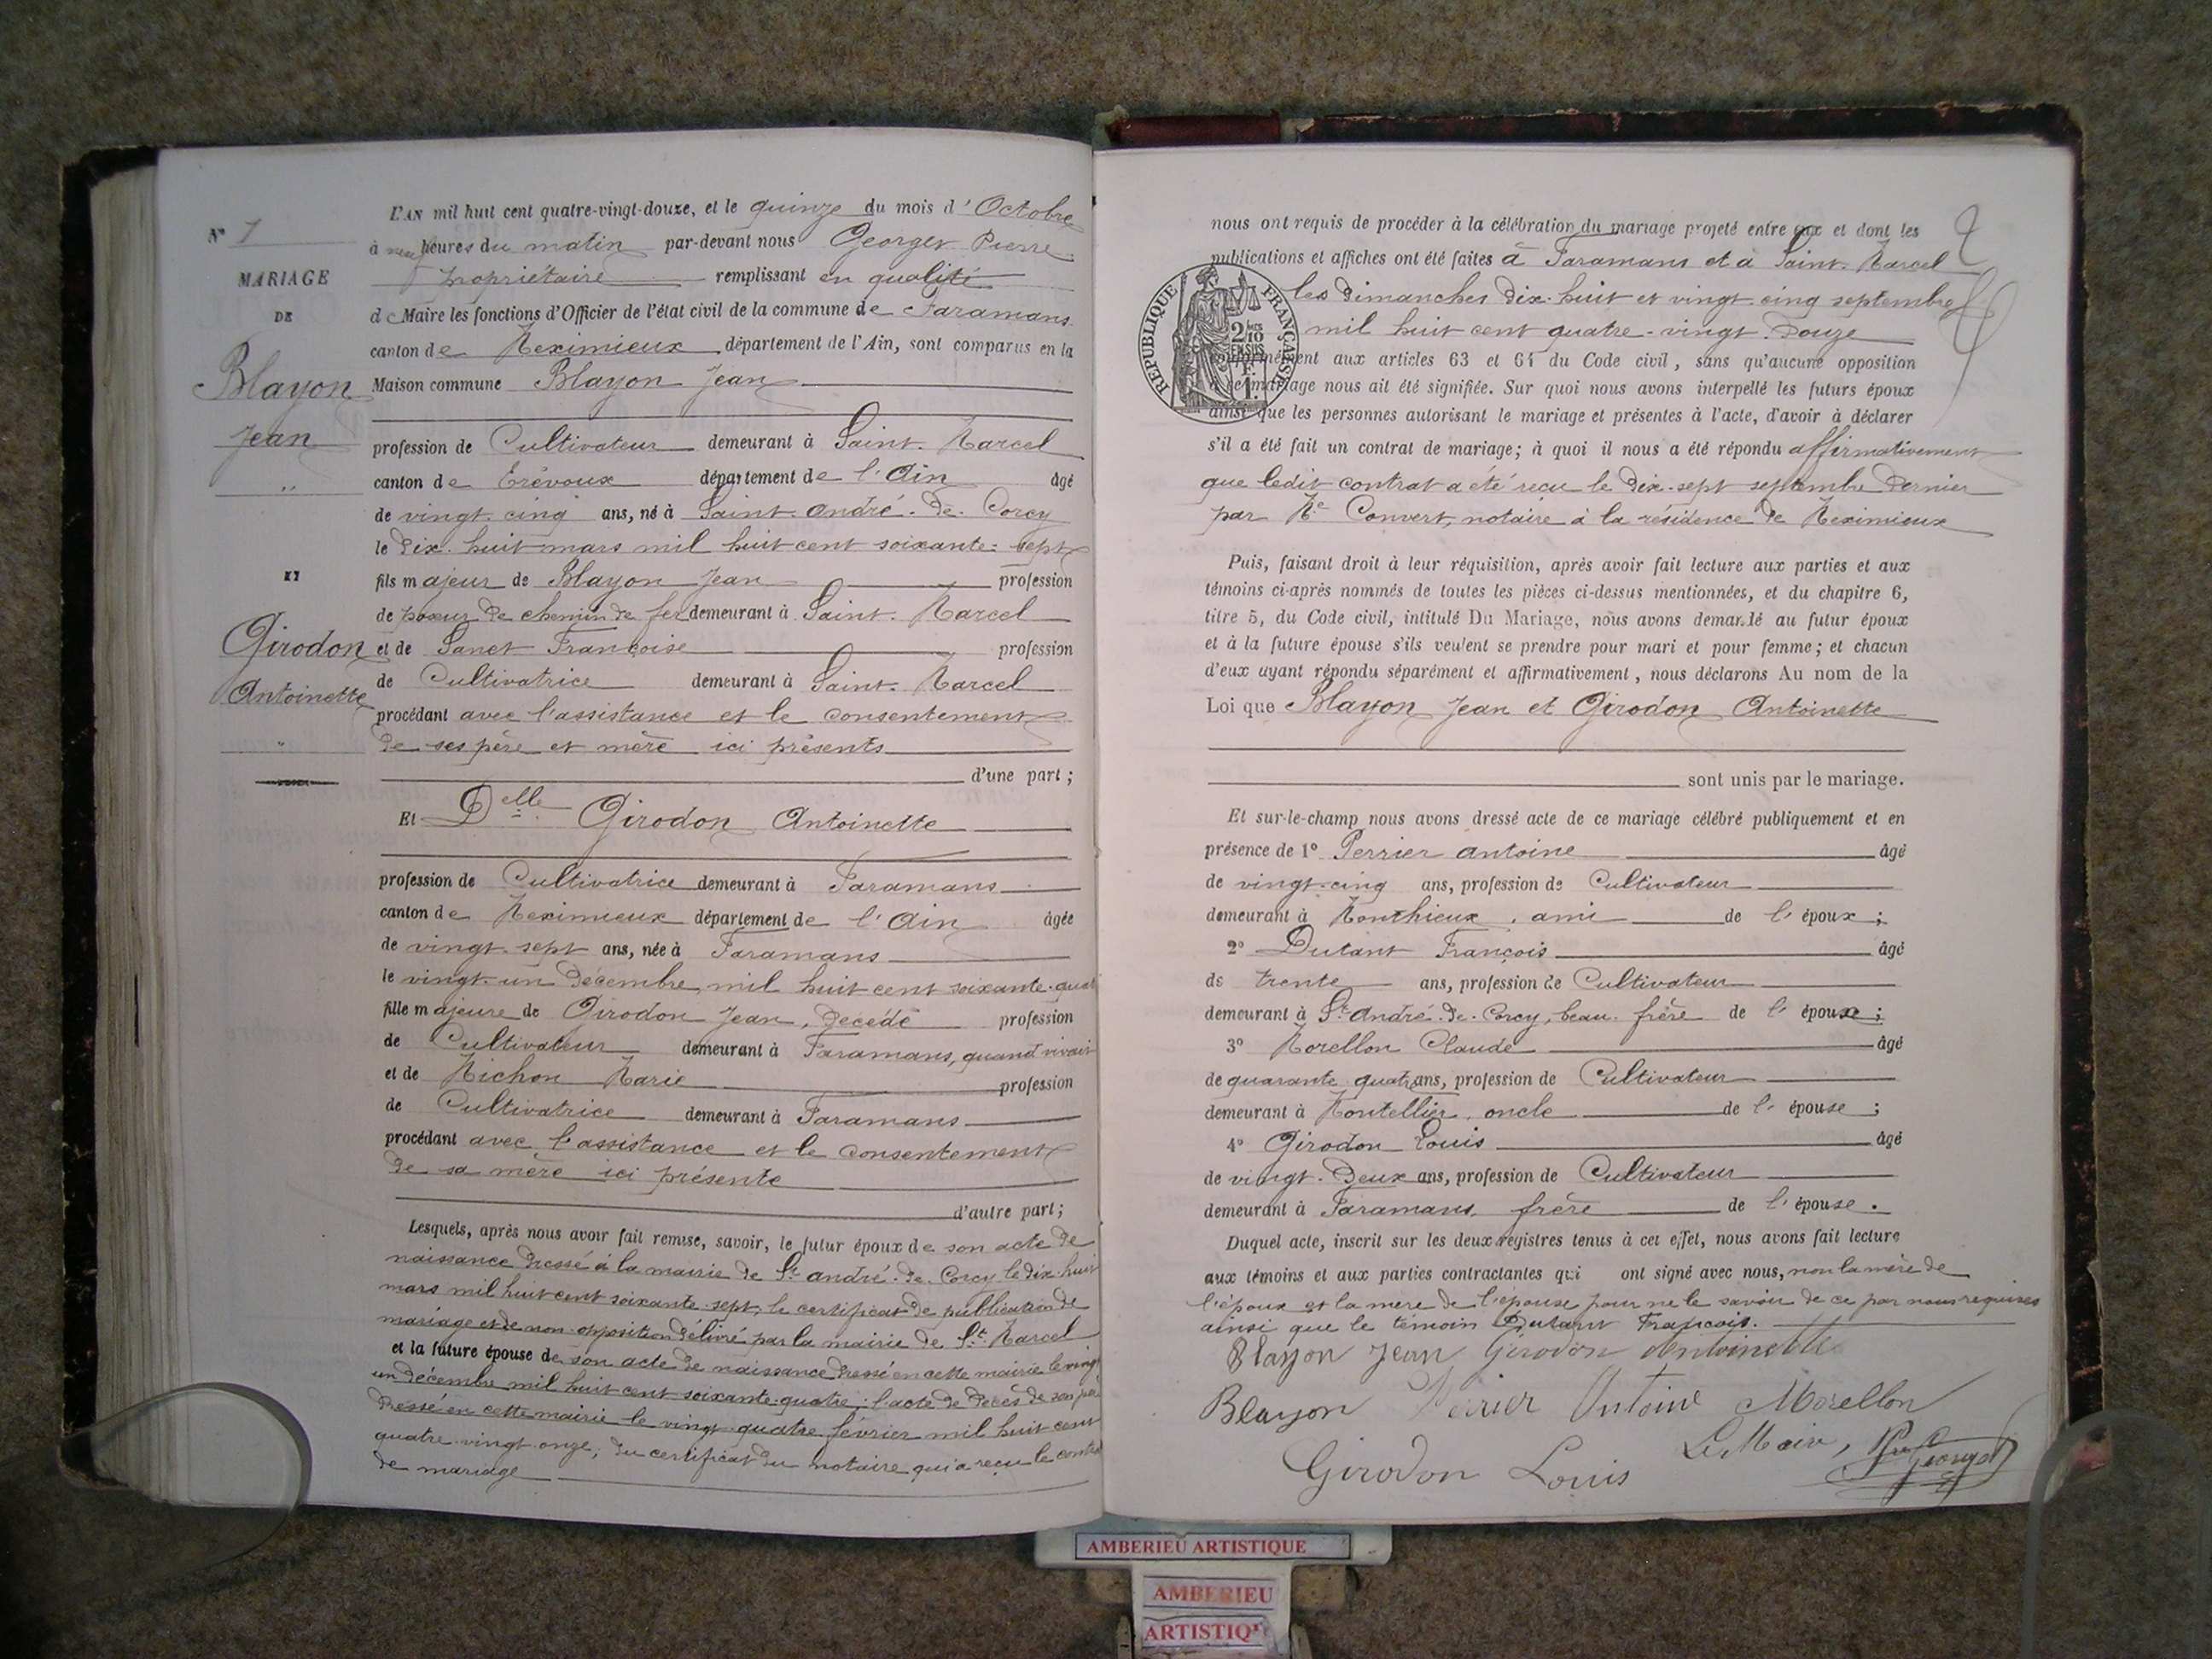 N° 7
MARIAGE
DE
Blayon
Jean
"
ET
Girodon
Antoinette
"
L'AN mil huit cent quatre-vingt-douze, et le quinze du mois d'Octobre
à neuf heures du matin par-devant nous Georges Pierre
propriétaire remplissant en qualité
de Maire les fonctions d'Officier de l'état civil de la commune de Faramans
canton de Meximieux département de l'Ain, sont comparus en la
Maison commune Blayon Jean
profession de Cultivateur demeurant à Saint-Marcel
canton de Trévoux département de l'Ain âgé
de vingt-cinq ans, né à Saint-André-de-Corcy
le dix-huit mars mil huit cent soixante-sept
fils majeur de Blayon Jean profession
de poseur de chemin de fer demeurant à Saint-Marcel
et de Françoise profession
de Cultivatrice demeurant à Saint-Marcel
procédant avec l'assistance et le consentement
de ses père et mère ici présents
d'une part;
Et Delle Girodon Antoinette
profession de Cultivatrice demeurant à Faramans
canton de Meximieux département de l'Ain âgée
de vingt-sept ans, née à Faramans
le vingt-un décembre mil huit cent soixante-quat
fille majeure de Girodon Jean, décédé profession
de Cultivateur demeurant à Faramans, quand vivait
et de Michon Marie profession
de Cultivatrice demeurant à Faramans
procédant avec l'assistance et le consentement
de sa mère ici présente
d'autre part;
Lesquels, après nous avoir fait remise, savoir, le futur époux de son acte de
naissance dressé à la mairie de St André-de-Corcy le dix-huit
mars mil huit cent soixante-sept; le certificat de publication de
mariage et de non-opposition délivré par la mairie de St Marcel
et la future épouse de son acte de naissance dressé en cette mairie le vingt
un décembre mil huit cent soixante-quatre; l'acte de décès de son père
dressé en cette mairie le vingt-quatre février mil huit cent
quatre-vingt-onze; du certificat du notaire qui a reçu le contrat
de mariage
nous ont requis de procéder à la célébration du mariage projeté entre eux et dont les
publications et affiches ont été faites à Faramans et à Saint-Marcel
les dimanches dix-huit et vingt-cinq septembre
mil huit cent quatre-vingt-douze
conformément aux articles 63 et 64 du Code civil, sans qu'aucune opposition
à ce mariage nous ait été signifiée. Sur quoi nous avons interpellé les futurs époux
ainsi que les personnes autorisant le mariage et présentes à l'acte, d'avoir à déclarer
s'il a été fait un contrat de mariage; à quoi il nous a été répondu affirmativement
que ledit contrat a été reçu le dix-sept septembre dernier
par Me Convert, notaire à la résidence de Meximieux
RÉPUBLIQUE FRANÇAISE
2/10 EN SUS
1 F.
Puis, faisant droit à leur réquisition, après avoir fait lecture aux parties et aux
témoins ci-après nommés de toutes les pièces ci-dessus mentionnées, et du chapitre 6,
titre 5, du Code civil, intitulé Du Mariage, nous avons demandé au futur époux
et à la future épouse s'ils veulent se prendre pour mari et pour femme; et chacun
d'eux ayant répondu séparément et affirmativement, nous déclarons Au nom de la
Loi que Blayon Jean et Girodon Antoinette
sont unis par le mariage.
Et sur-le-champ nous avons dressé acte de ce mariage célébré publiquement et en
présence de 1° Perrier Antoine âgé
de vingt-cinq ans, profession de Cultivateur
demeurant à Monthieux, ami de l'époux;
2° Dutant François âgé
de trente ans, profession de Cultivateur
demeurant à St André-de-Corcy, beau-frère de l'époux;
3° Morellon Claude âgé
de quarante-quatre ans, profession de Cultivateur
demeurant à Montellier, oncle de l'épouse;
4° Girodon Louis âgé
de vingt-deux ans, profession de Cultivateur
demeurant à Faramans, frère de l'épouse.
Duquel acte, inscrit sur les deux registres tenus à cet effet, nous avons fait lecture
aux témoins et aux parties contractantes qui ont signé avec nous, non la mère de
l'époux et la mère de l'épouse pour ne le savoir de ce par nous requises
ainsi que le témoin Dutant François.
Blayon Jean Girodon Antoinette
Blayon Perrier Antoine Morellon
Girodon Louis Le Maire,
AMBERIEU ARTISTIQUE
AMBERIEU
ARTISTIQ